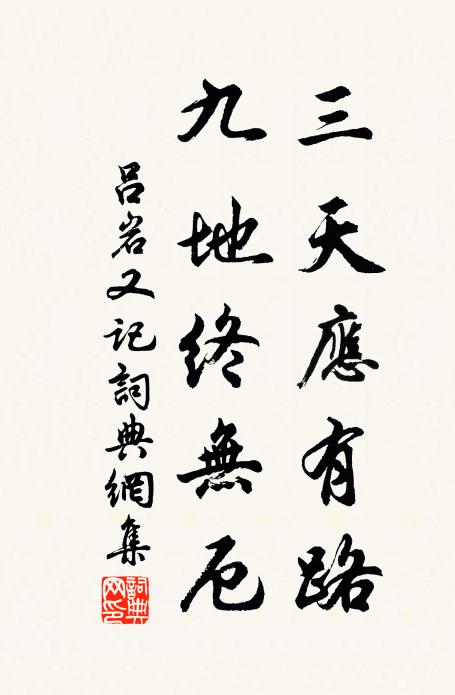 三天應有路
九地終無厄
呂岩又記詞典網集
詞典
網印